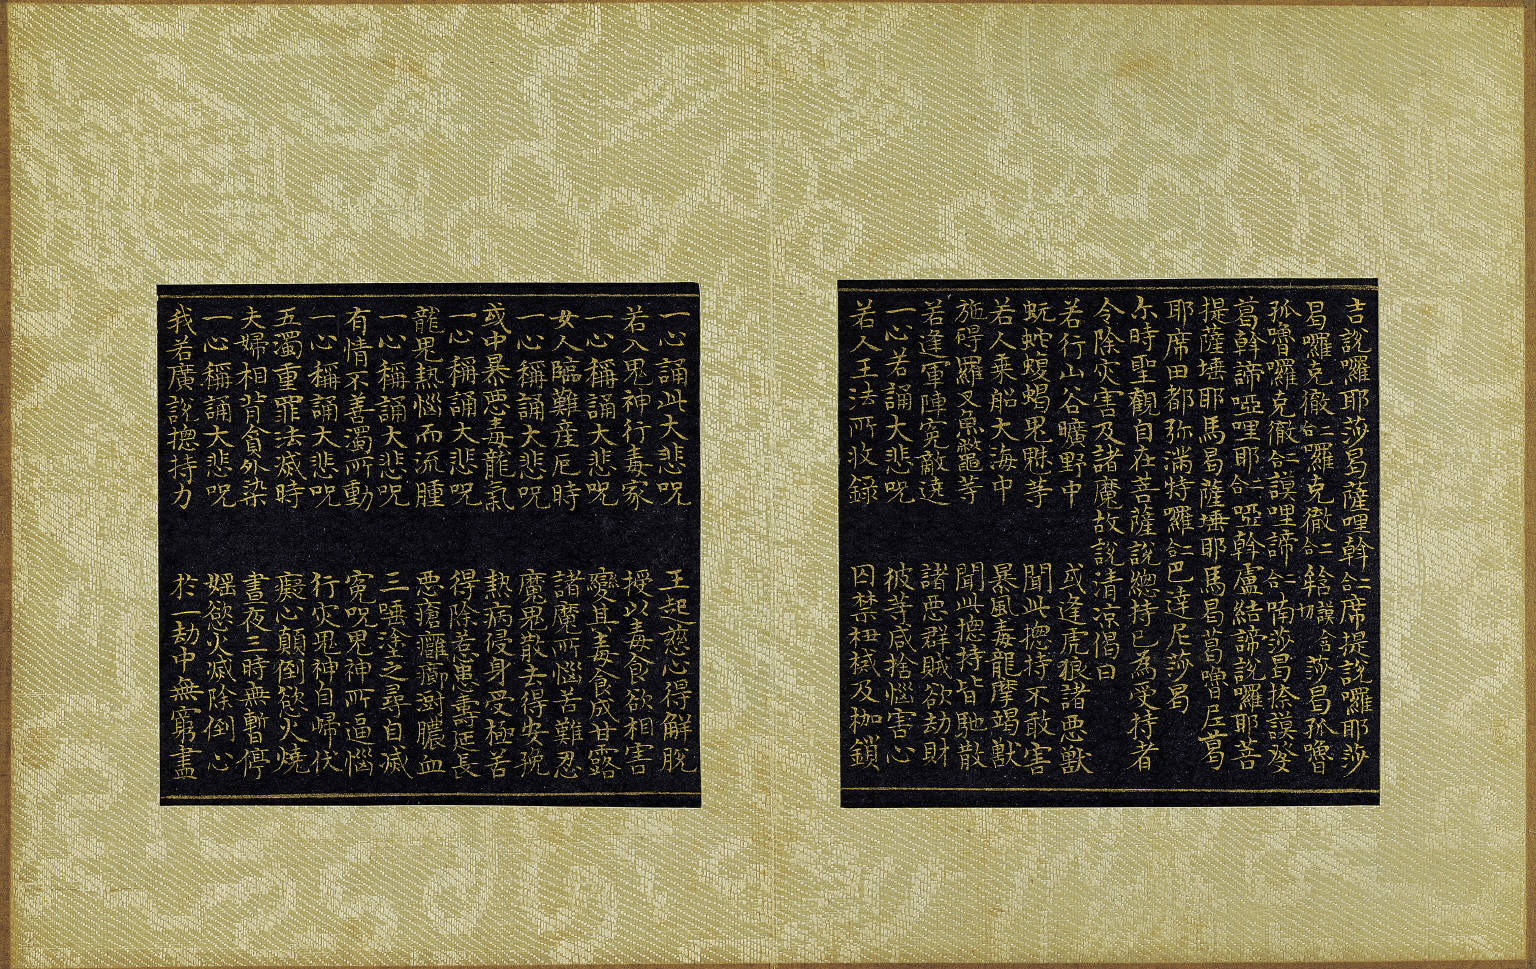 吉說囉耶莎曷薩哩斡二合席提說囉耶莎
曷囉克徹二合囉克徹二合謨含切莎曷孤嚕
孤嚕囉克徹二合謨哩諦二合喃莎曷捺謨癹
葛斡諦啞哩耶二合啞斡盧結諦說囉耶菩
提薩埵耶馬曷薩埵耶馬曷葛嚕尼葛
耶席田都弥滿特囉二合巴達尼莎曷
尒時聖觀自在菩薩說緫持已為受持者
令除灾害及諸魔故說清凉偈曰
若行山谷曠野中 或逢虎狼諸惡獸
蚖蛇蝮蝎鬼魅等 聞此揔持不敢害
若人乗船大海中 暴風毒龍摩竭獸
施碍羅叉魚鼈等 聞此揔持皆馳散
若逢軍陣寃敵遶 諸惡群賊欲劫財
一心若誦大悲呪 彼等咸捨惱害心
若人王法所收録 囚禁杻械及枷鎖
一心誦此大悲呪 王起慈心得解脫
若入鬼神行毒家 授以毒食欲相害
一心稱誦大悲呪 變其毒食成甘露
女人臨難產厄時 諸魔所惱苦難忍
一心稱誦大悲呪 魔鬼散去得安挽
或中暴惡毒龍氣 熱病侵身受極苦
一心稱誦大悲呪 得除苦患壽延長
龍鬼熱惱而流腫 惡瘡癰癤澍膿血
一心稱誦大悲呪 三唾塗之尋自滅
有情不善濁所動 寃呪鬼神所逼惱
一心稱誦大悲呪 行灾鬼神自歸伏
五濁重罪法滅時 癡心顛倒慾火燒
夫婦相背貪外染 晝夜三時無暫停
一心稱誦大悲呪 婬慾火滅除倒心
我若廣說揔持力 於一劫中無窮盡